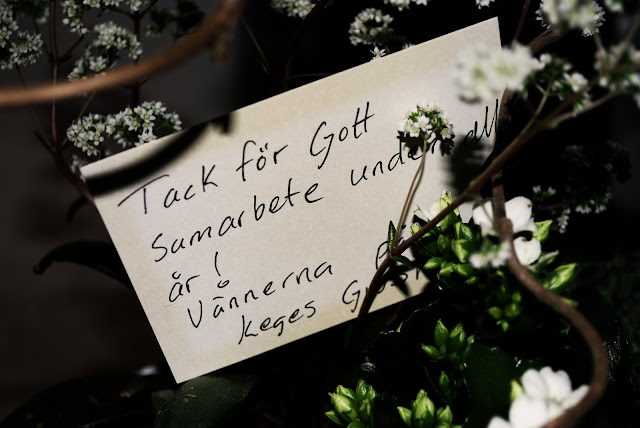 Tack för Gott
Samarbete under all
år!
Vånnerna
keges